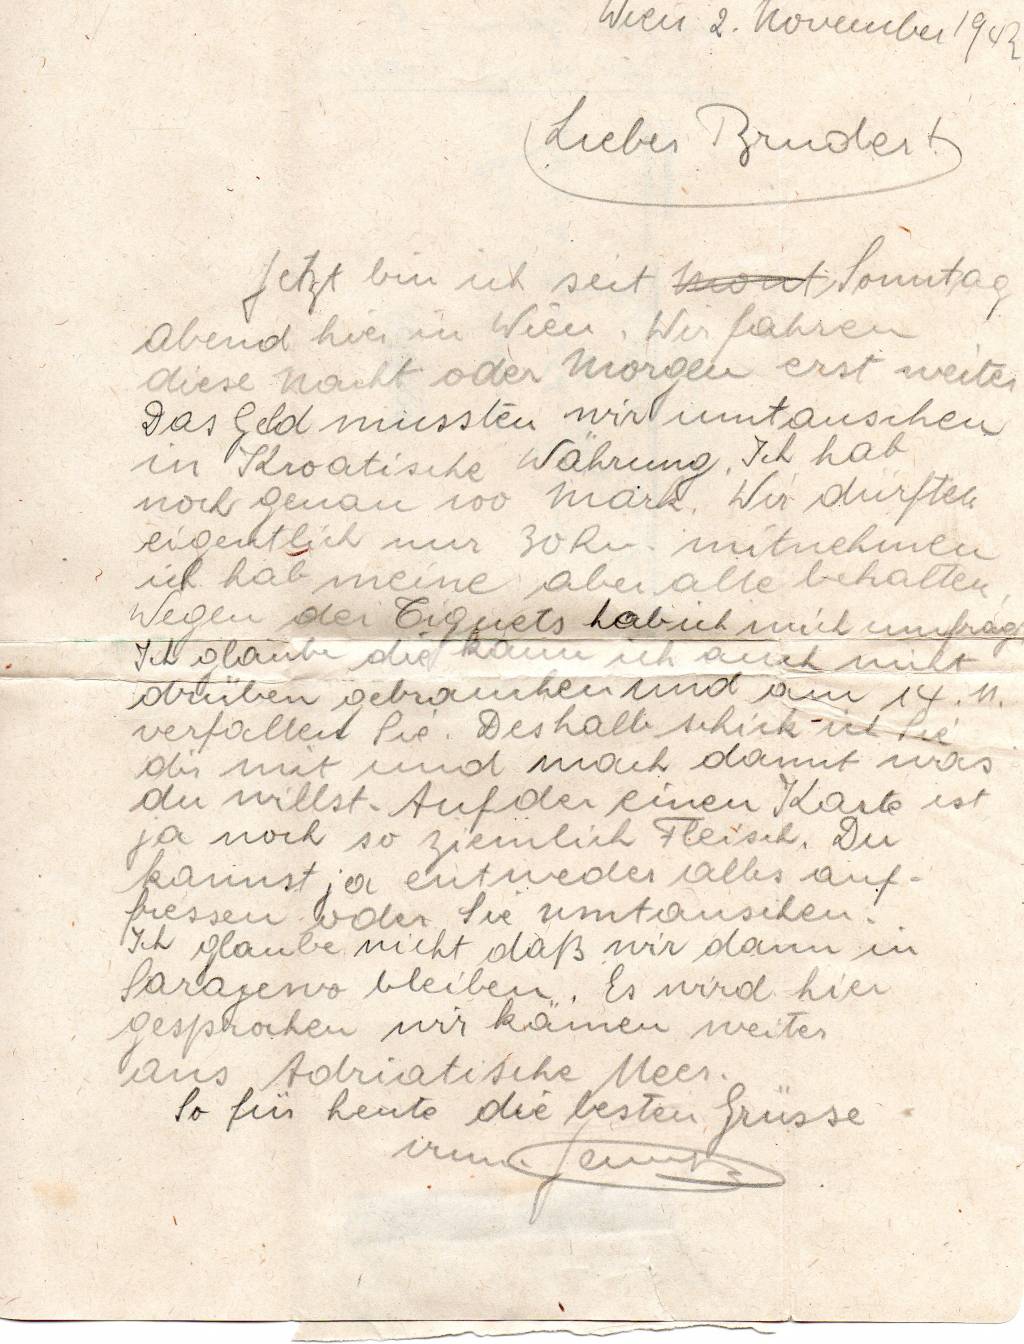 Wien 2. November 194
Lieber Bruder!
Jetzt bin ich seit Mont Sonntag
abend hier in Wien. Wir fahren
diese Nacht oder Morgen erst weiter
Das Geld mussten wir umtauschen
in Kroatische Währung. Ich hab
noch genau 100 Mark. Wir dürften
eigentlich nur 30 Rm. mitnehmen
ich hab meine aber alle behalten,
Wegen der hab ich mich umfrag
Ich glaube die kann ich auch nicht
drüben gebrauchen und am 14. 11.
verfallen Sie. Deshalb schick ich Sie
dir mit und mach damit was
du willst. Auf der einen Karte ist
ja noch so ziemlich Fleisch. Du
kannst ja entweder alles auf-
fressen oder Sie umtauschen.
Ich glaube nicht daß wir dann in
Sarajewo bleiben. Es wird hier
gesprochen wir kämen weiter
ans Adriatische Meer.
So für heute die besten Grüsse